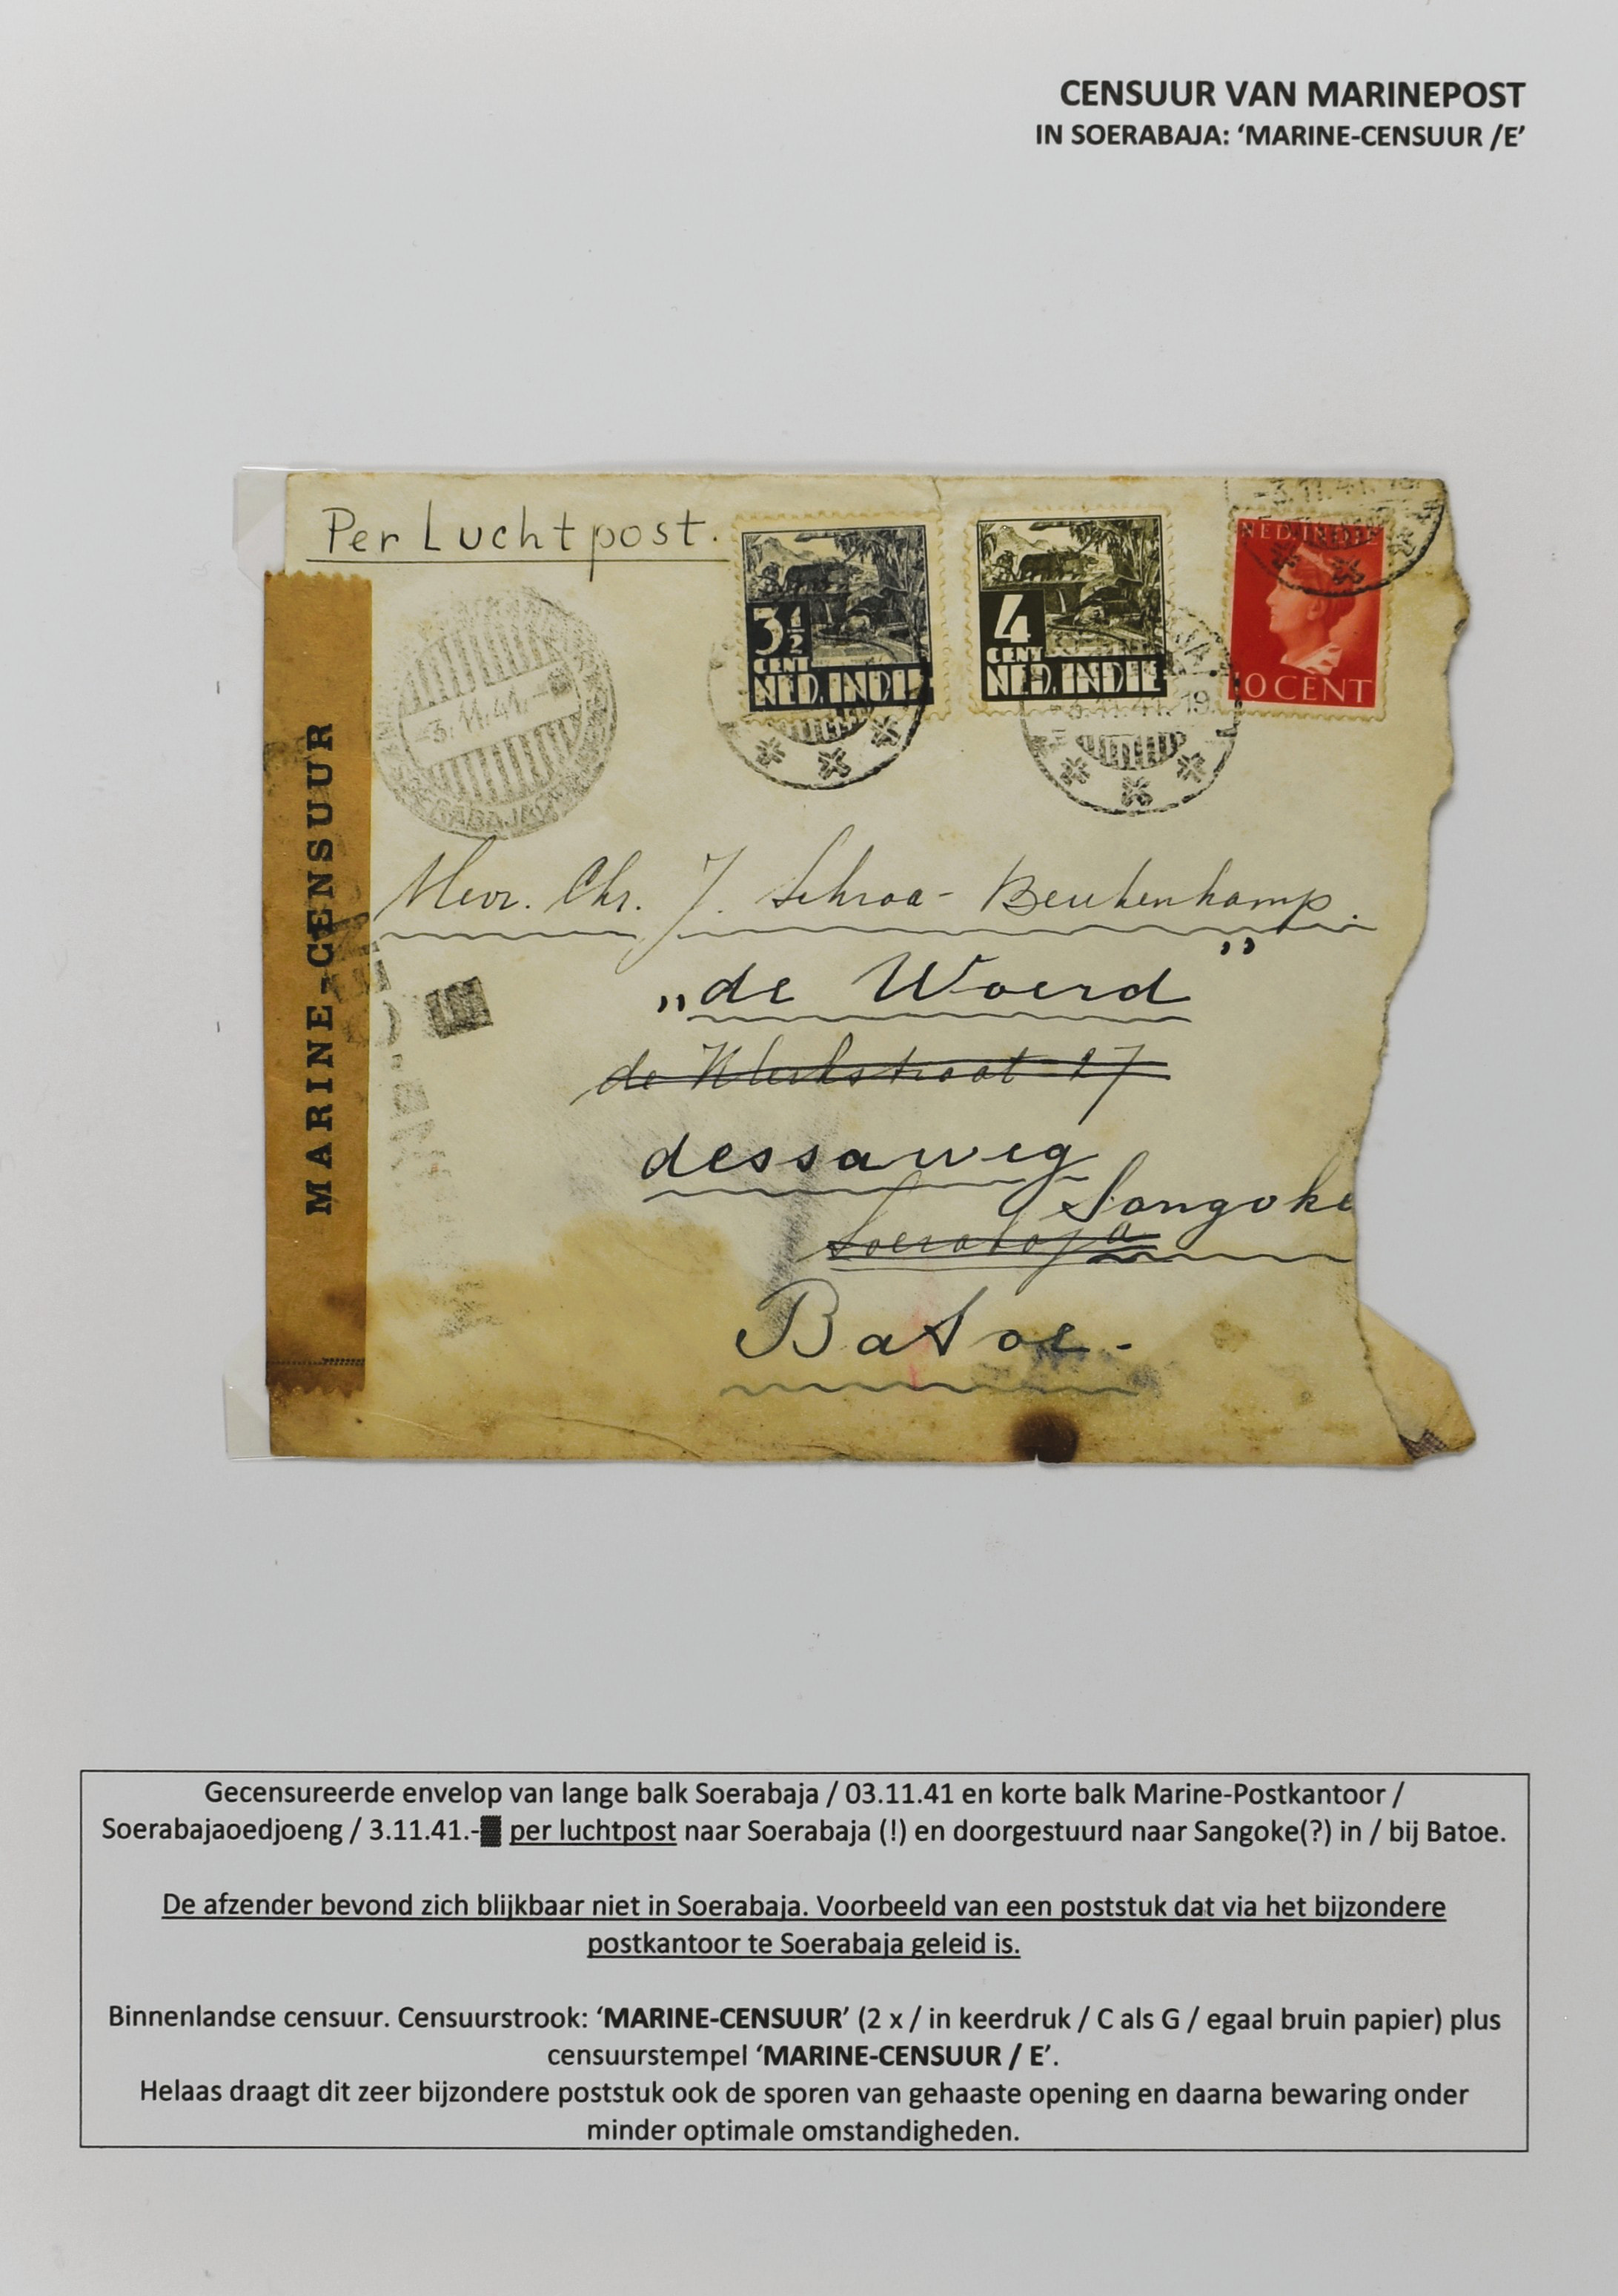 CENSUUR VAN MARINEPOST
IN SOERABAJA: ‘MARINE-CENSUUR /E’
Per Luchtpost.
3½
CENT
NED. INDIE
4
CENT
NED. INDIE
NED. INDIE
10 CENT
-3.11.41. 19
-3.11.41.-
-3.11.41. 19
MARINE-CENSUUR
Mevr. Chr. J. Schroa - Beukenkamp.
„de Woerd”
dessaweg
Sangoke
Soerabaja
Batoe -
Gecensureerde envelop van lange balk Soerabaja / 03.11.41 en korte balk Marine-Postkantoor /
Soerabajaoedjoeng / 3.11.41.-▓ per luchtpost naar Soerabaja (!) en doorgestuurd naar Sangoke(?) in / bij Batoe.
De afzender bevond zich blijkbaar niet in Soerabaja. Voorbeeld van een poststuk dat via het bijzondere
postkantoor te Soerabaja geleid is.
Binnenlandse censuur. Censuurstrook: ‘MARINE-CENSUUR’ (2 x / in keerdruk / C als G / egaal bruin papier) plus
censuurstempel ‘MARINE-CENSUUR / E’.
Helaas draagt dit zeer bijzondere poststuk ook de sporen van gehaaste opening en daarna bewaring onder
minder optimale omstandigheden.